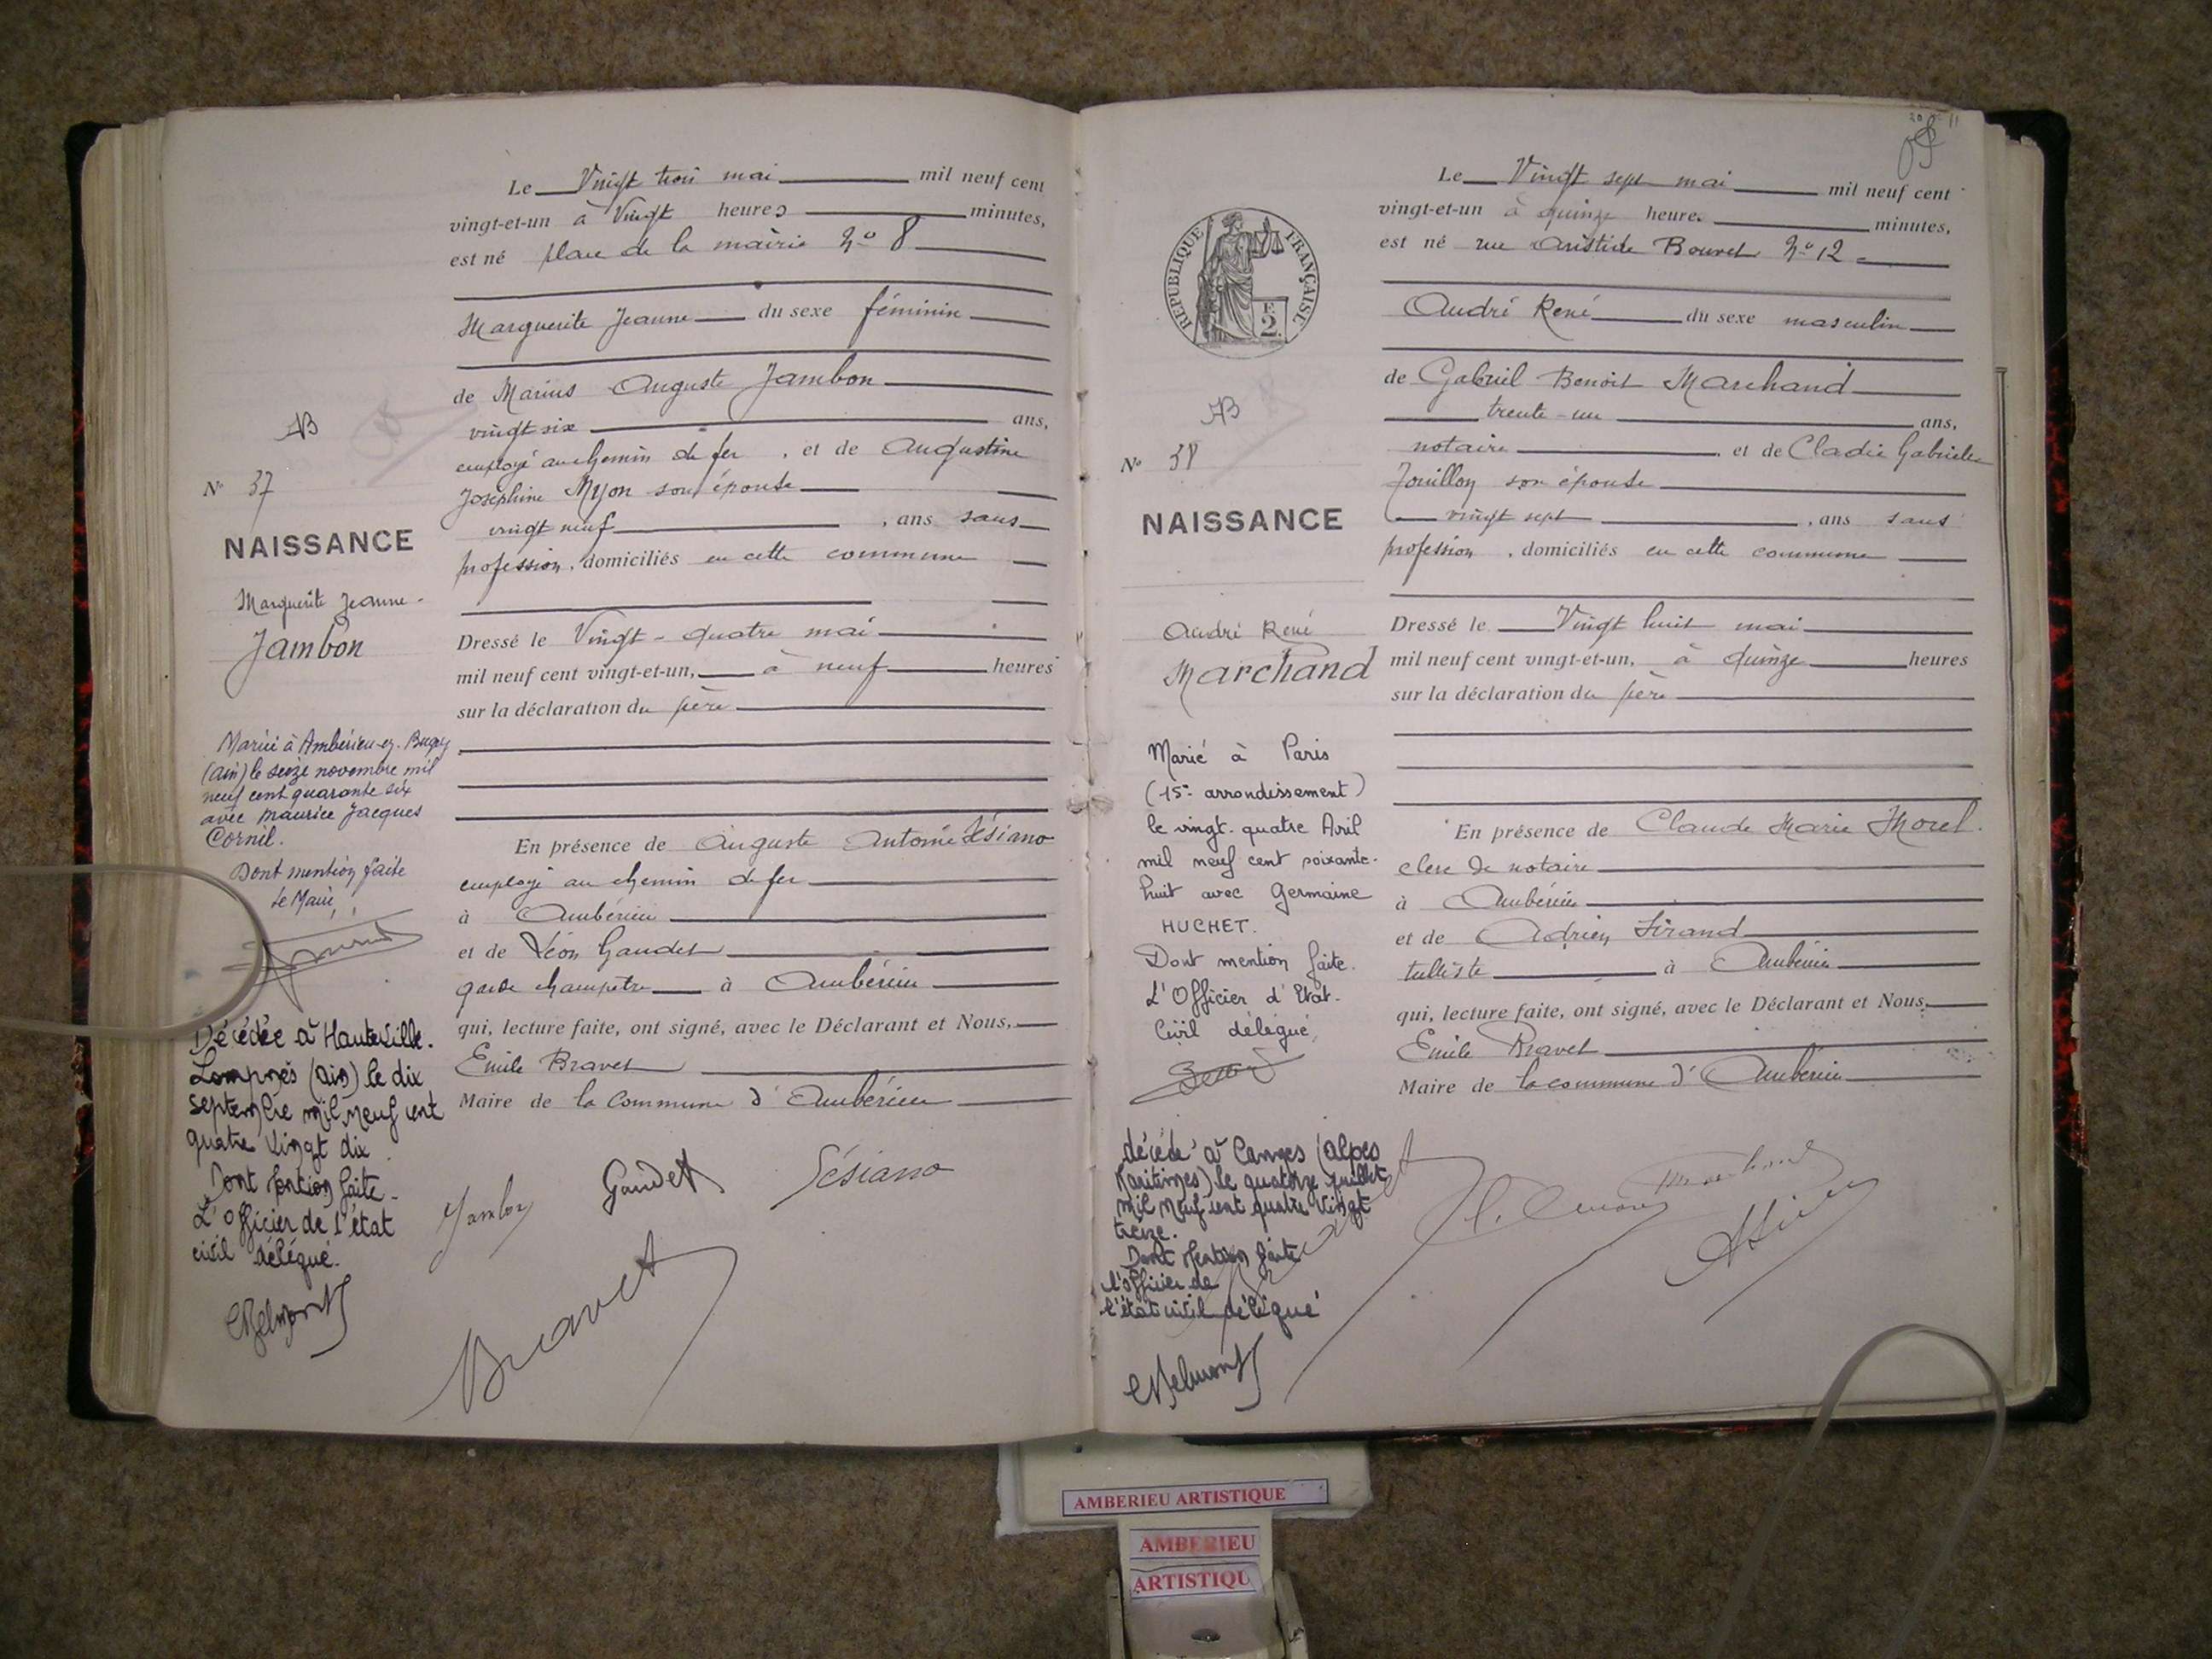 Le Vingt trois mai mil neuf cent
vingt-et-un à Vingt heures minutes,
est né place de la mairie N° 8
Marguerite Jeanne du sexe féminin
de Marius Auguste Jambon
vingt six ans,
employé au chemin de fer, et de Augustine
Joséphine Myon son épouse
vingt neuf, ans sans
profession, domiciliés en cette commune
Dressé le Vingt-quatre mai
mil neuf cent vingt-et-un, à neuf heures
sur la déclaration du père
En présence de Auguste Antoine Sésiano
employé au chemin de fer
à Ambérieu
et de Léon Gaudet
garde champêtre à Ambérieu
qui, lecture faite, ont signé, avec le Déclarant et Nous,
Emile Bravet
Maire de la Commune d'Ambérieu
Jambon Gaudet Sésiano
Bravet
AB
N° 37
NAISSANCE
Marguerite Jeanne
Jambon
Mariée à Ambérieu-en-Bugey
(Ain) le seize novembre mil
neuf cent quarante six
avec Maurice Jacques
Cornil.
Dont mention faite
Le Maire,
Décédée à Hauteville.
Lompnès (Ain) le dix
septembre mil neuf cent
quatre vingt dix
Dont mention faite
L'Officier de l'état
civil délégué.
CBelmont
Le Vingt sept mai mil neuf cent
vingt-et-un à quinze heures minutes,
est né rue Aristide Bouvet N° 12
André René du sexe masculin
de Gabriel Benoit Marchand
trente-un ans,
notaire, et de Cladie Gabrielle
son épouse
vingt sept, ans sans
profession, domiciliés en cette commune
Dressé le Vingt huit mai
mil neuf cent vingt-et-un, à quinze heures
sur la déclaration du père
En présence de Claude Marie Morel.
clerc de notaire
à Ambérieu
et de Adrien Sirand
tulliste à Ambérieu
qui, lecture faite, ont signé, avec le Déclarant et Nous,
Emile Bravet
Maire de la commune d'Ambérieu
Marchand
RÉPUBLIQUE FRANÇAISE
E
2
AB
N° 38
NAISSANCE
André René
Marchand
Marié à Paris
(15e arrondissement)
le vingt-quatre Avril
mil neuf cent soixante-
huit avec Germaine
HUCHET.
Dont mention faite.
L'Officier d'Etat-
Civil délégué,
décédé à Cannes (Alpes
Maritimes) le quatorze juillet
mil neuf cent quatre vingt
treize.
Dont mention faite
l'officier de
l'état civil délégué
CBelmont
AMBERIEU ARTISTIQUE
AMBERIEU
ARTISTIQU